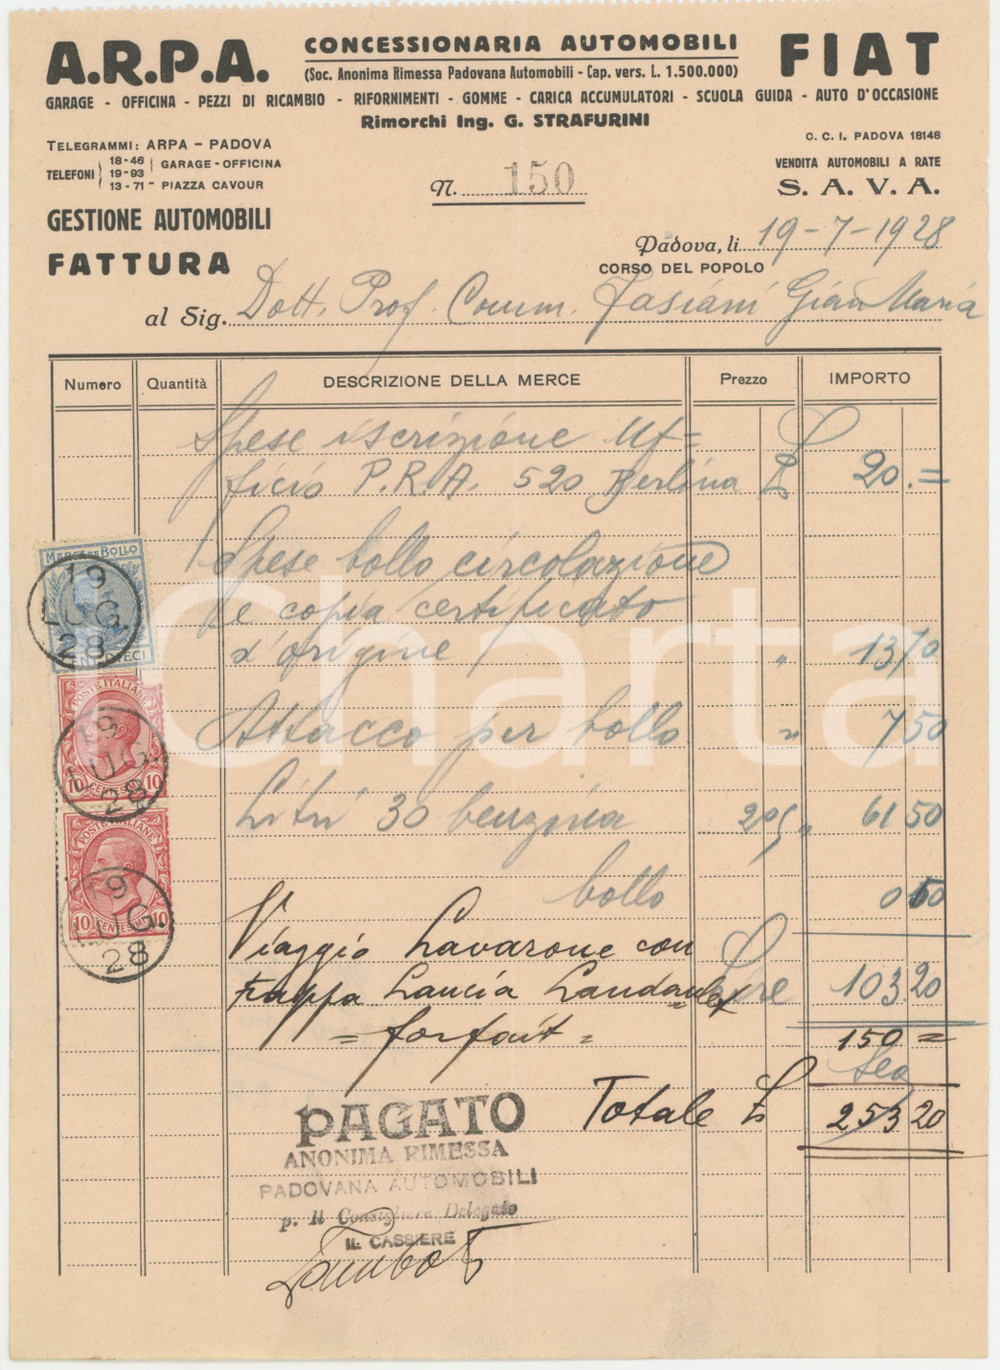 A.R.P.A.
CONCESSIONARIA AUTOMOBILI
FIAT
(Soc. Anonima Rimessa Padovana Automobili - Cap. vers. L. 1.500.000)
GARAGE - OFFICINA - PEZZI DI RICAMBIO - RIFORNIMENTI - GOMME - CARICA ACCUMULATORI - SCUOLA GUIDA - AUTO D'OCCASIONE
Rimorchi Ing. G. STRAFURINI
TELEGRAMMI: ARPA - PADOVA
TELEFONI
18-46
19-93
GARAGE - OFFICINA
13-71 - PIAZZA CAVOUR
C. C. I. PADOVA 18148
VENDITA AUTOMOBILI A RATE
S. A. V. A.
N. 150
GESTIONE AUTOMOBILI
FATTURA
Padova, li 19-7-1928
CORSO DEL POPOLO
al Sig. Dott. Prof. Comm. Fasiani Gian Maria
Numero Quantità DESCRIZIONE DELLA MERCE Prezzo IMPORTO
Spese iscrizione Uf=
ficio P.R.A. 520 Berlina £ 20.=
Spese bollo circolazione
e copia certificato
d'origine " 13 70
Attacco per bollo " 7 50
Litri 30 benzina 205 " 61 50
bollo 0 50
Viaggio Lavarone con
Frappa Lancia Landaulet Lire 103.20
= forfait = 150 =
Totale £ 253 20
MARCA DA BOLLO
19
LUG.
28
POSTE ITALIANE
19
LUG.
28
10 CENTESIMI 10
POSTE ITALIANE
19
LUG.
28
10 CENTESIMI 10
PAGATO
ANONIMA RIMESSA
PADOVANA AUTOMOBILI
p. Il Consigliere Delegato
IL CASSIERE
Charta